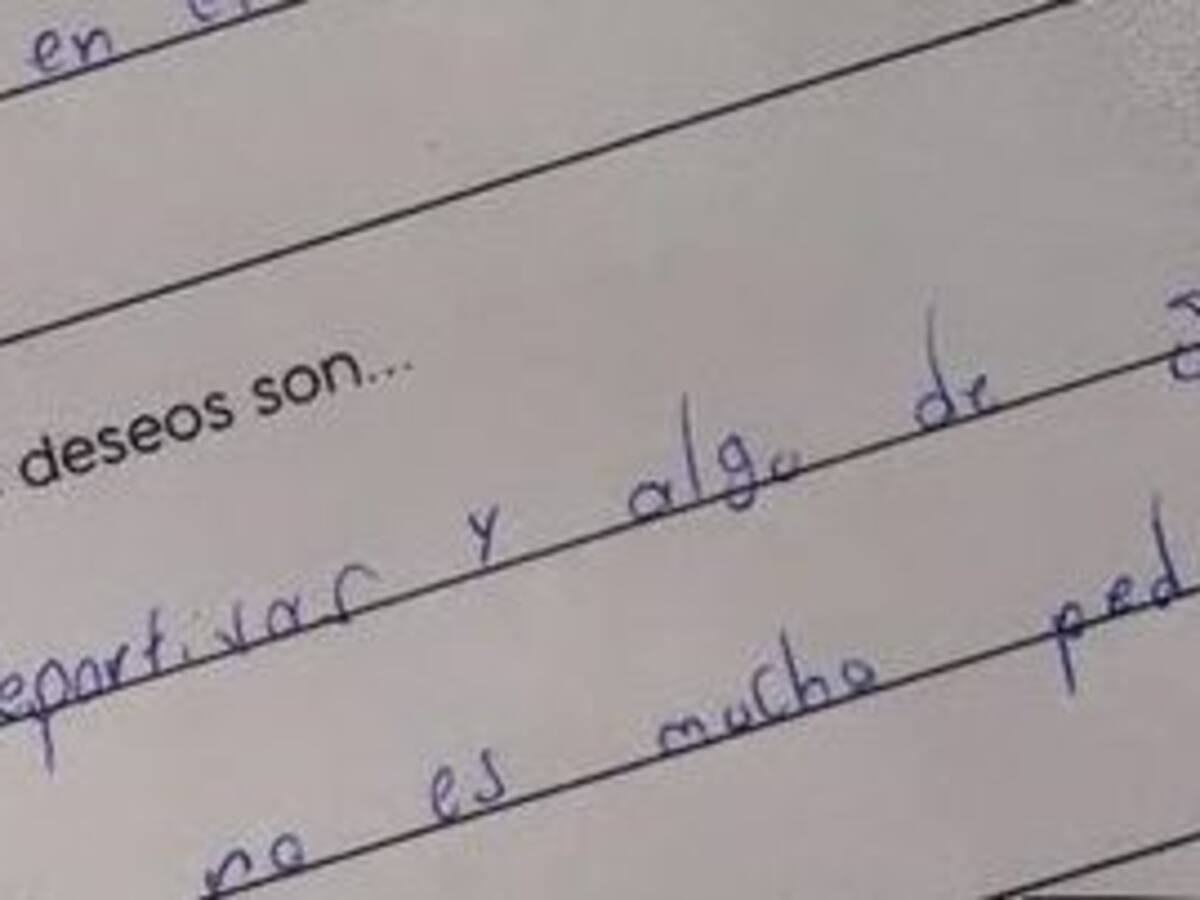 en
deseos son...
eportivas y algo de
no es mucho ped